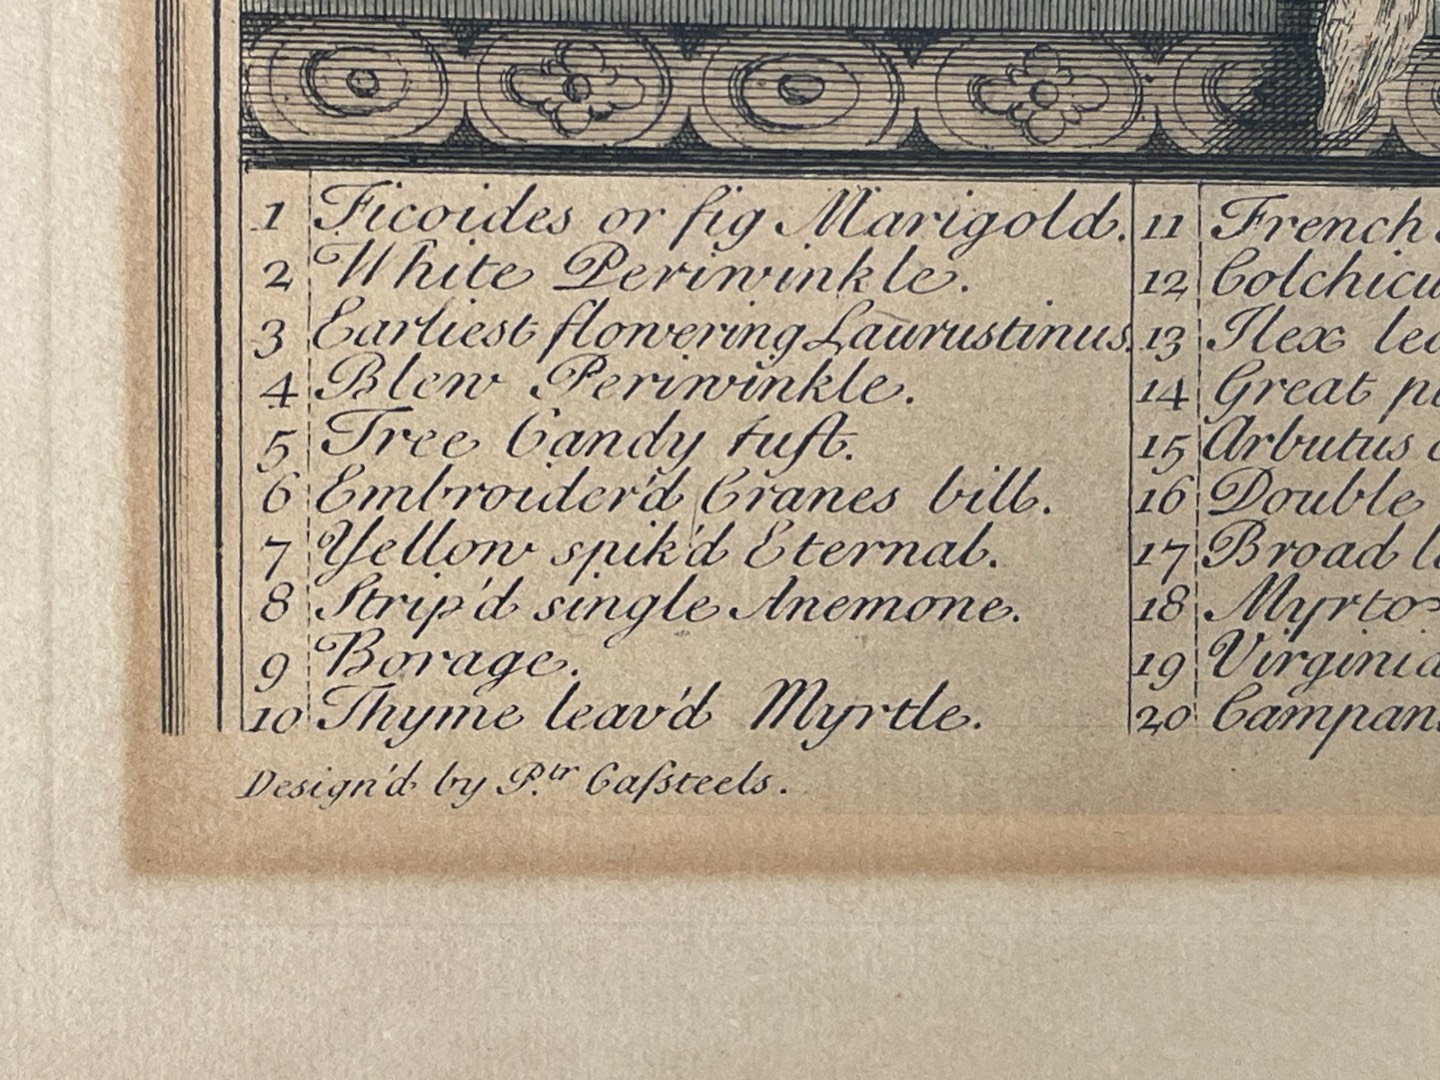 1 Ficoides or fig Marigold.
2 White Periwinkle.
3 Earliest flowering Laurustinus.
4 Blew Periwinkle.
5 Tree Candy tuft.
6 Embroider'd Cranes bill.
7 Yellow spik'd Eternal.
8 Strip'd single Anemone.
9 Borage.
10 Thyme leav'd Myrtle.
11 French
12 Colchicu
13 Ilex lea
14 Great p
15 Arbutus
16 Double
17 Broad l
18 Myrto
19 Virginia
20 Campan
Design'd by P.tr Caſsteels.